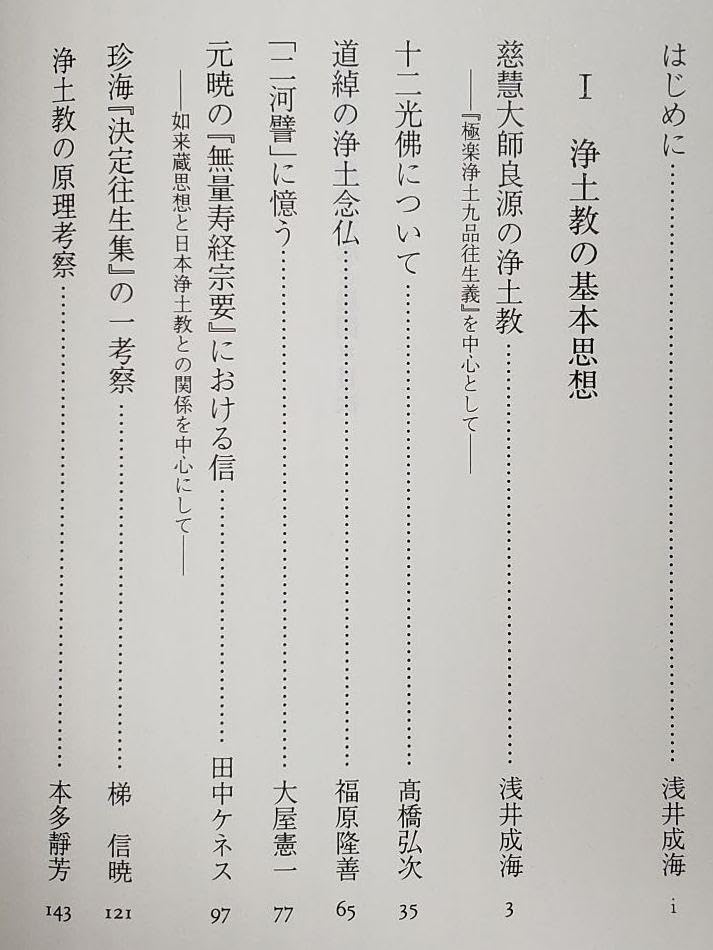 はじめに……………………浅井成海 i
I 浄土教の基本思想
慈慧大師良源の浄土教……………………浅井成海 3
――『極楽浄土九品往生義』を中心として――
十二光佛について……………………髙橋弘次 35
道綽の浄土念仏……………………福原隆善 65
「二河譬」に憶う……………………大屋憲一 77
元暁の『無量寿経宗要』における信……………………田中ケネス 97
――如来蔵思想と日本浄土教との関係を中心にして――
珍海『決定往生集』の一考察……………………梯 信暁 121
浄土教の原理考察……………………本多靜芳 143